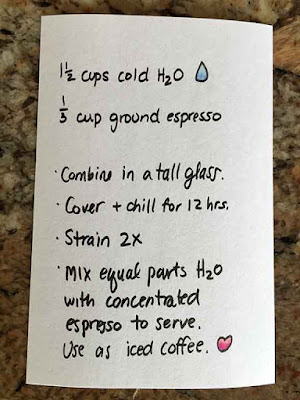 1½ cups cold H₂O
⅓ cup ground espresso
· Combine in a tall glass.
· Cover + chill for 12 hrs.
· Strain 2x
· Mix equal parts H₂O
with concentrated
espresso to serve.
Use as iced coffee.